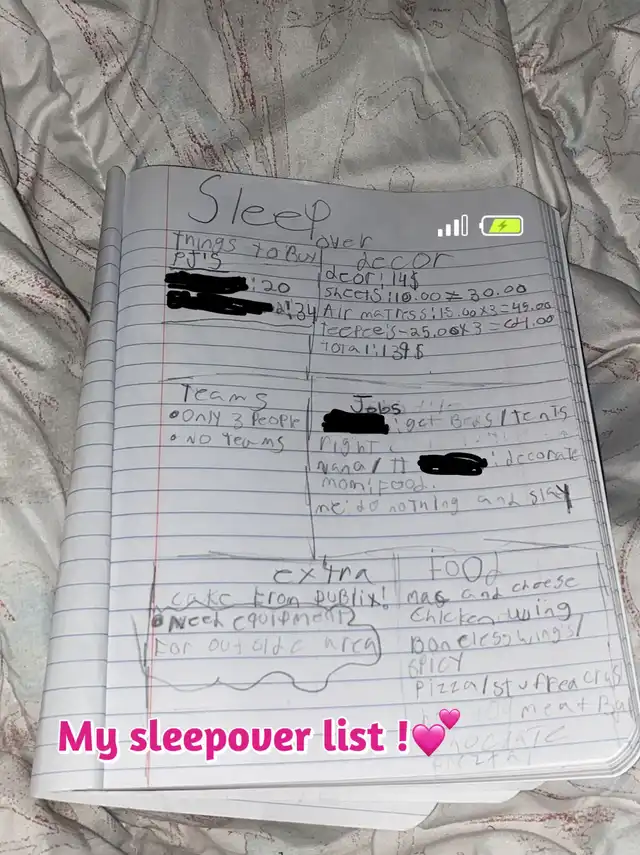 Sleep
over
Things to Buy
PJ'S
:20
:34
decor
deor: 14$
sheets: 10.00 = 30.00
Air matress: 15.00x3=45.00
teepees-25.00x3=
total:139$
Teams
• Only 3 People
• NO teams
Jobs
: get Beds/tents
right.
nana/ : decorate
mom: FOOD.
me: do nothing and slay
extra
cake from publix!
• Need equipment
For outside area
FOOd
mac and cheese
Chicken wing
Boneless wings/
SPICY
Pizza/stuffed crus
meat Ba
My sleepover list !💕